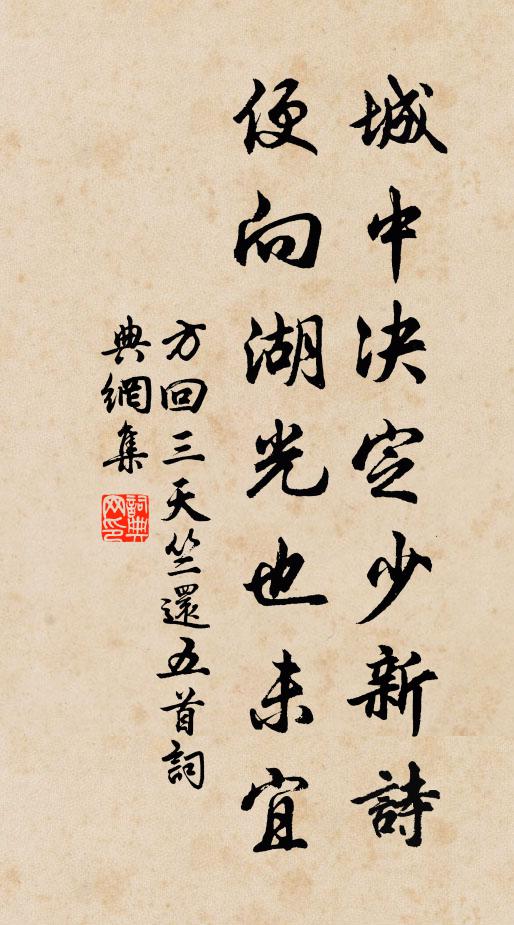 城中決定少新詩
便向湖光也未宜
方回三天竺還五首詞
典網集
詞典網印